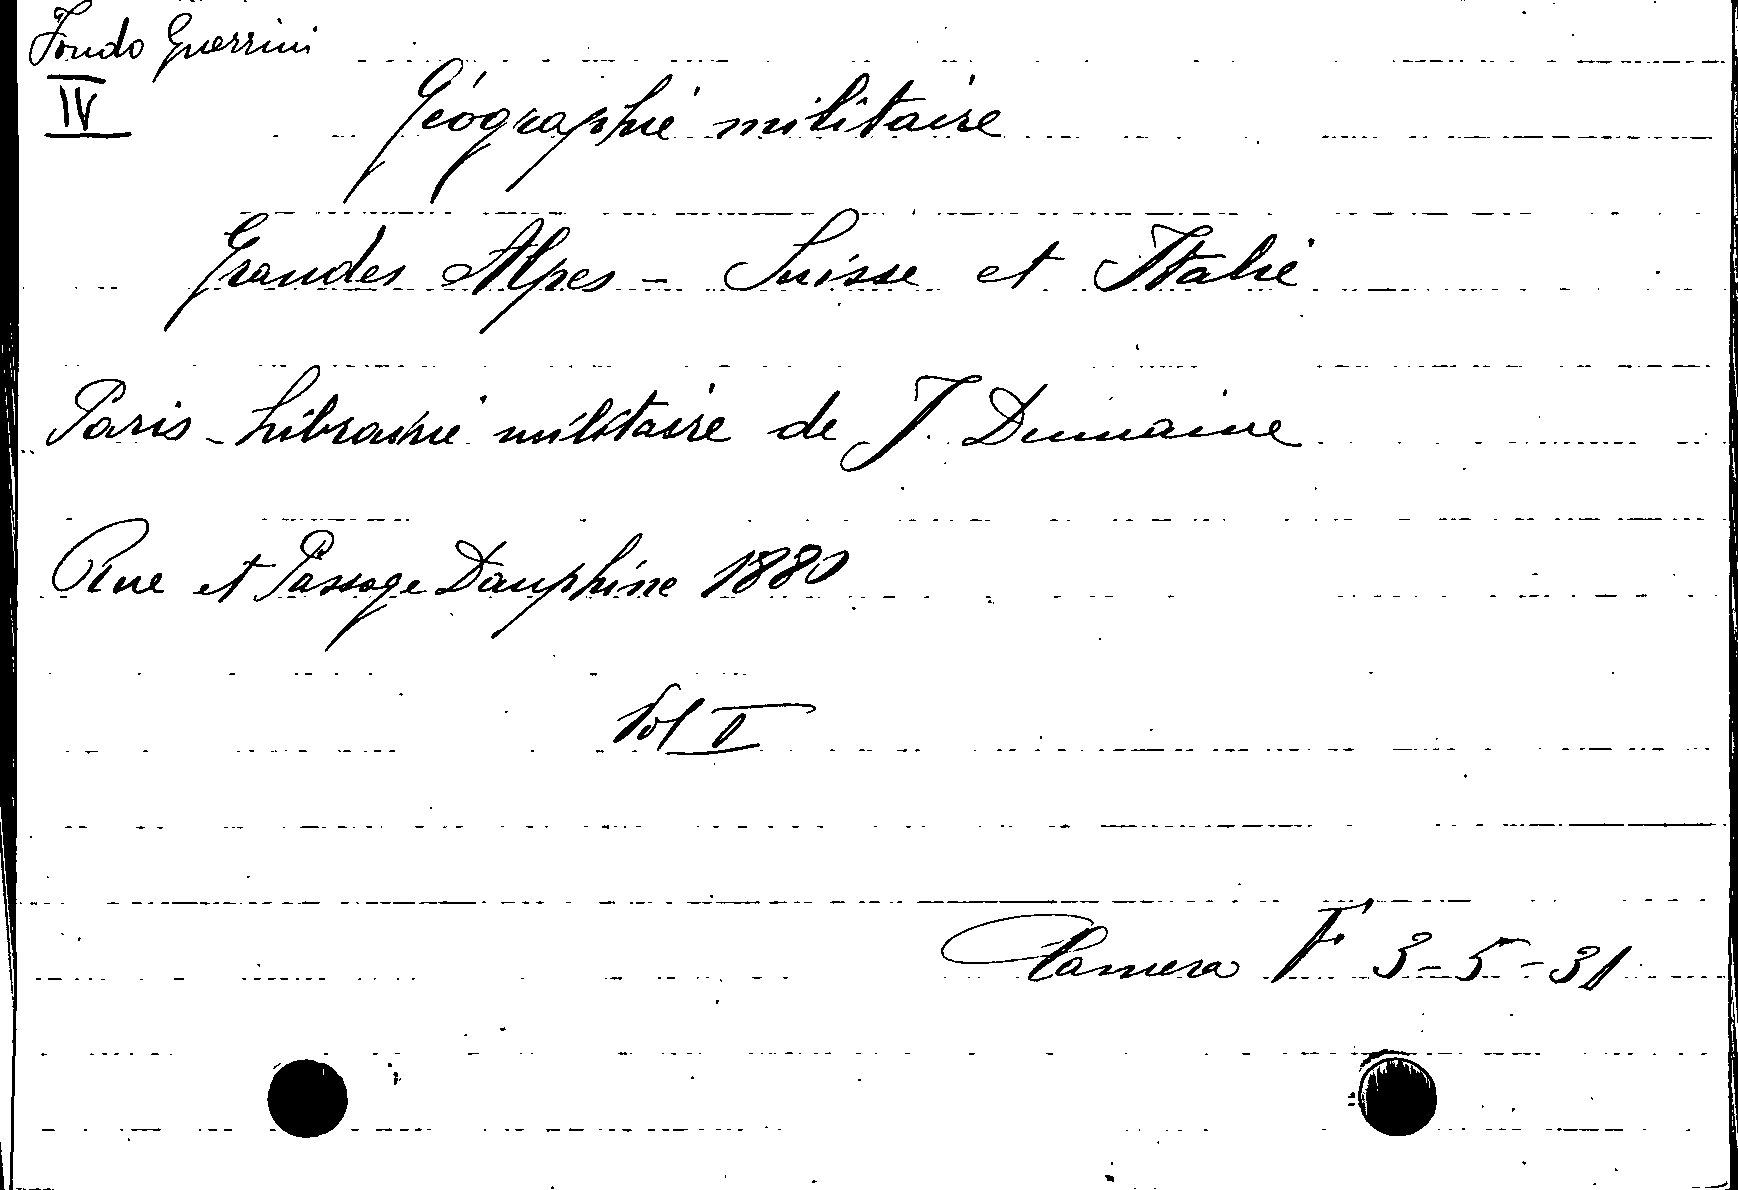 Fondo Guerrini
IV
Géographie militaire
Grandes Alpes - Suisse et Italie
Paris - Librairie militaire de J. Dumaine
Rue et Passage Dauphine 1880
Vol I
Camera F 3-5-31